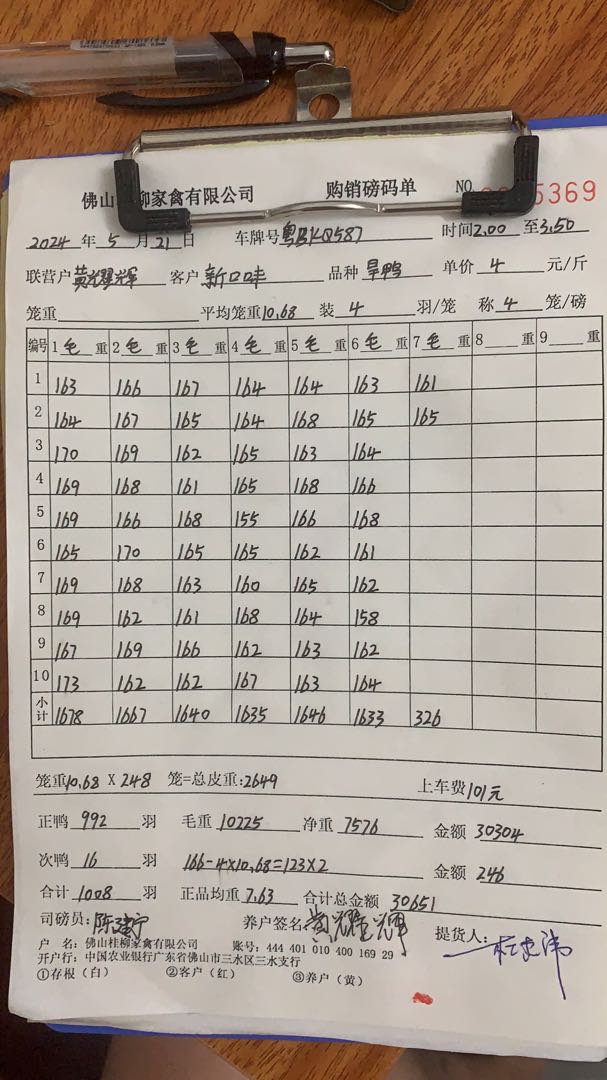 佛山桂柳家禽有限公司 购销磅码单 NO 5369
2024 年 5 月 21 日 车牌号 粤BKQ587 时间2.00 至3.50
联营户 黄耀辉 客户 新口味 品种 旱鸭 单价 4 元/斤
笼重 平均笼重10.68 装 4 羽/笼 称 4 笼/磅
编号 1 毛 重 2 毛 重 3 毛 重 4 毛 重 5 毛 重 6 毛 重 7 毛 重 8 重 9 重
1 163 166 167 164 164 163 161
2 164 167 165 164 168 165 165
3 170 169 162 165 163 164
4 169 168 161 165 168 166
5 169 166 168 155 166 168
6 165 170 165 165 162 161
7 169 168 163 160 165 162
8 169 162 161 168 164 158
9 167 169 166 162 163 162
10 173 162 162 167 163 164
小计 1678 1667 1640 1635 1646 1633 326
笼重10.68 X 248 笼=总皮重:2649 上车费101元
正鸭 992 羽 毛重 10225 净重 7576 金额 30304
次鸭 16 羽 166-4×10.68=123×2 金额 246
合计 1008 羽 正品均重 7.63 合计总金额 30651
司磅员: 养户签名 黄耀辉 提货人:
户 名: 佛山桂柳家禽有限公司 账号: 444 401 010 400 169 29
开户行: 中国农业银行广东省佛山市三水区三水支行
①存根（白） ②客户（红） ③养户（黄）